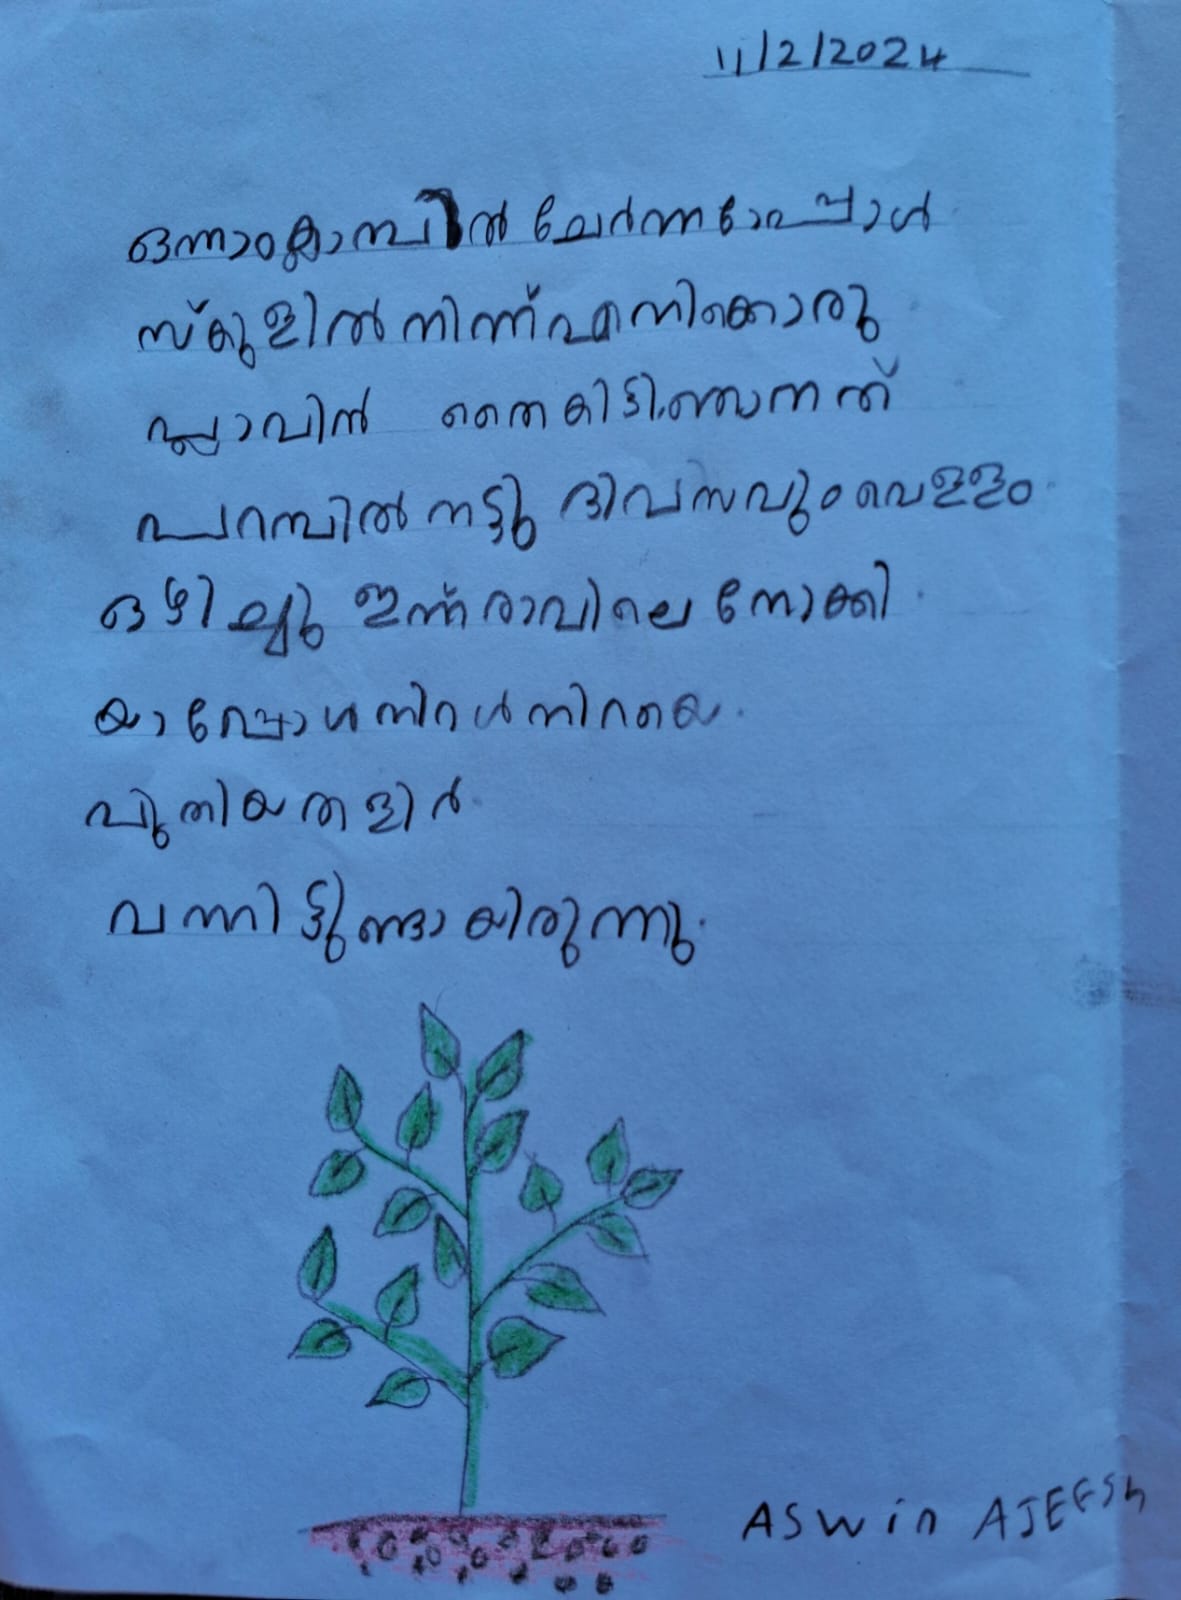 11/2/2024
ഒന്നാംക്ലാസിൽ ചേർന്നപ്പോൾ
സ്കുളിൽ നിന്ന് എനിക്കൊരു
പ്ലാവിൻ തൈകിട്ടി.ഞാനത്
പറമ്പിൽ നട്ടു ദിവസവും വെള്ളം
ഒഴിച്ചു ഇന്ന് രാവിലെ നോക്കി
യാപ്പോൾ നിറൾനിറയെ
പുതിയതളിർ
വന്നിട്ടുണ്ടായിരുന്നു.
ASWin AJEESh